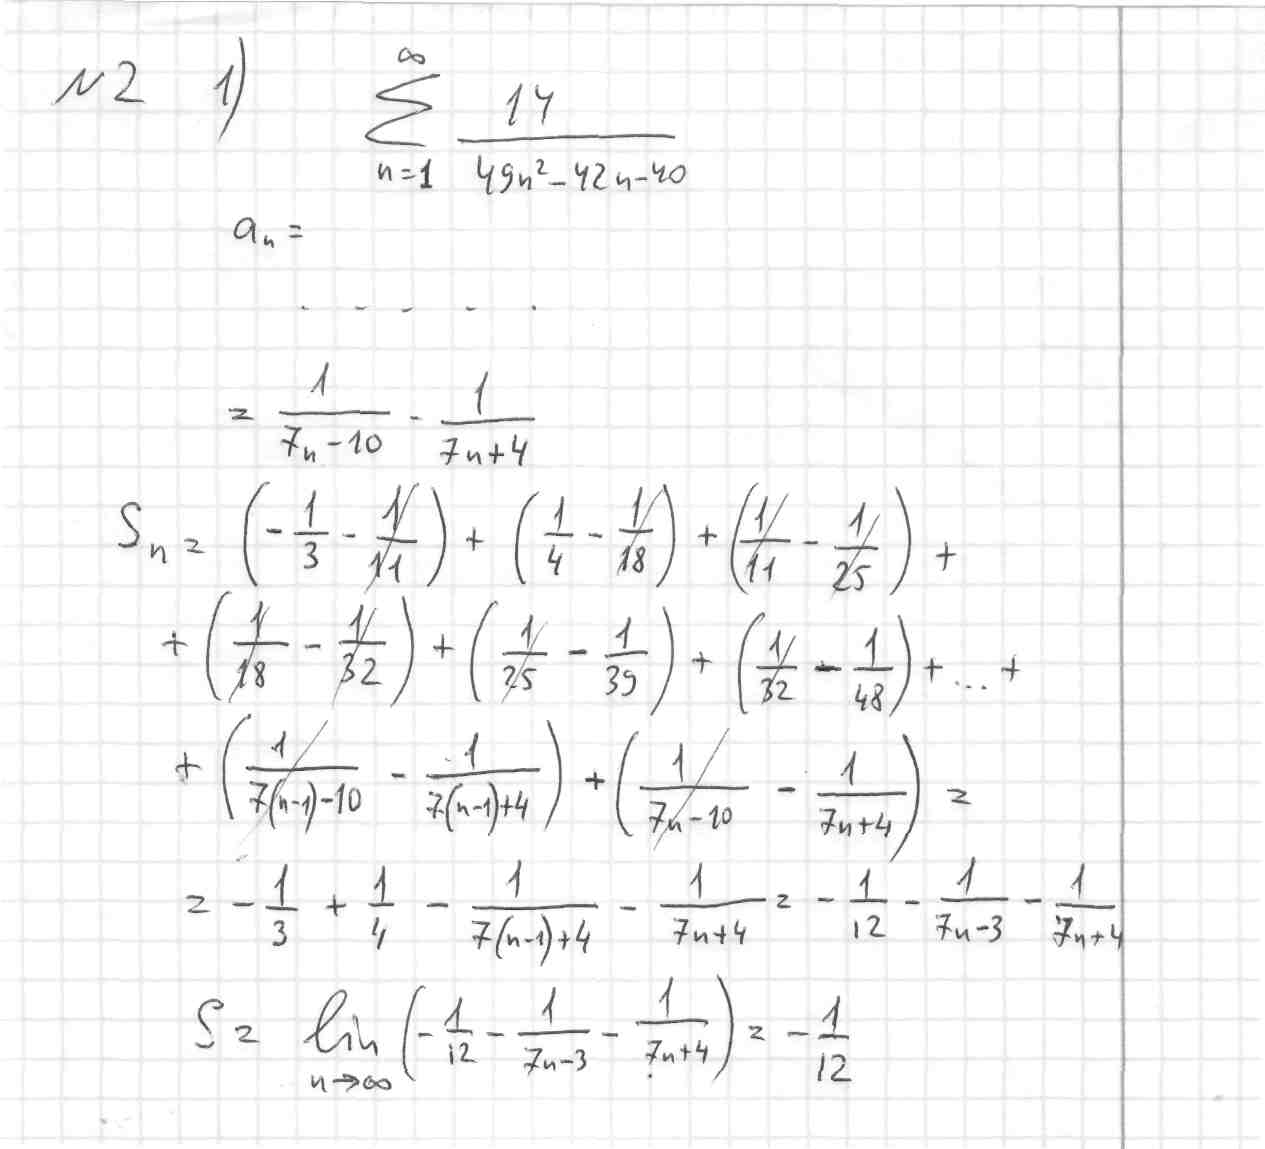 N2 1) \sum_{n=1}^{\infty} \frac{14}{49n^2-42n-40}
a_n =
. - - - .
= \frac{1}{7n-10} - \frac{1}{7n+4}
S_n = (-\frac{1}{3} - \frac{1}{11}) + (\frac{1}{4} - \frac{1}{18}) + (\frac{1}{11} - \frac{1}{25}) +
+ (\frac{1}{18} - \frac{1}{32}) + (\frac{1}{25} - \frac{1}{39}) + (\frac{1}{32} - \frac{1}{48}) + ... +
+ (\frac{1}{7(n-1)-10} - \frac{1}{7(n-1)+4}) + (\frac{1}{7n-10} - \frac{1}{7n+4}) =
= -\frac{1}{3} + \frac{1}{4} - \frac{1}{7(n-1)+4} - \frac{1}{7n+4} = -\frac{1}{12} - \frac{1}{7n-3} - \frac{1}{7n+4}
S = \lim_{n \to \infty} (-\frac{1}{12} - \frac{1}{7n-3} - \frac{1}{7n+4}) = -\frac{1}{12}